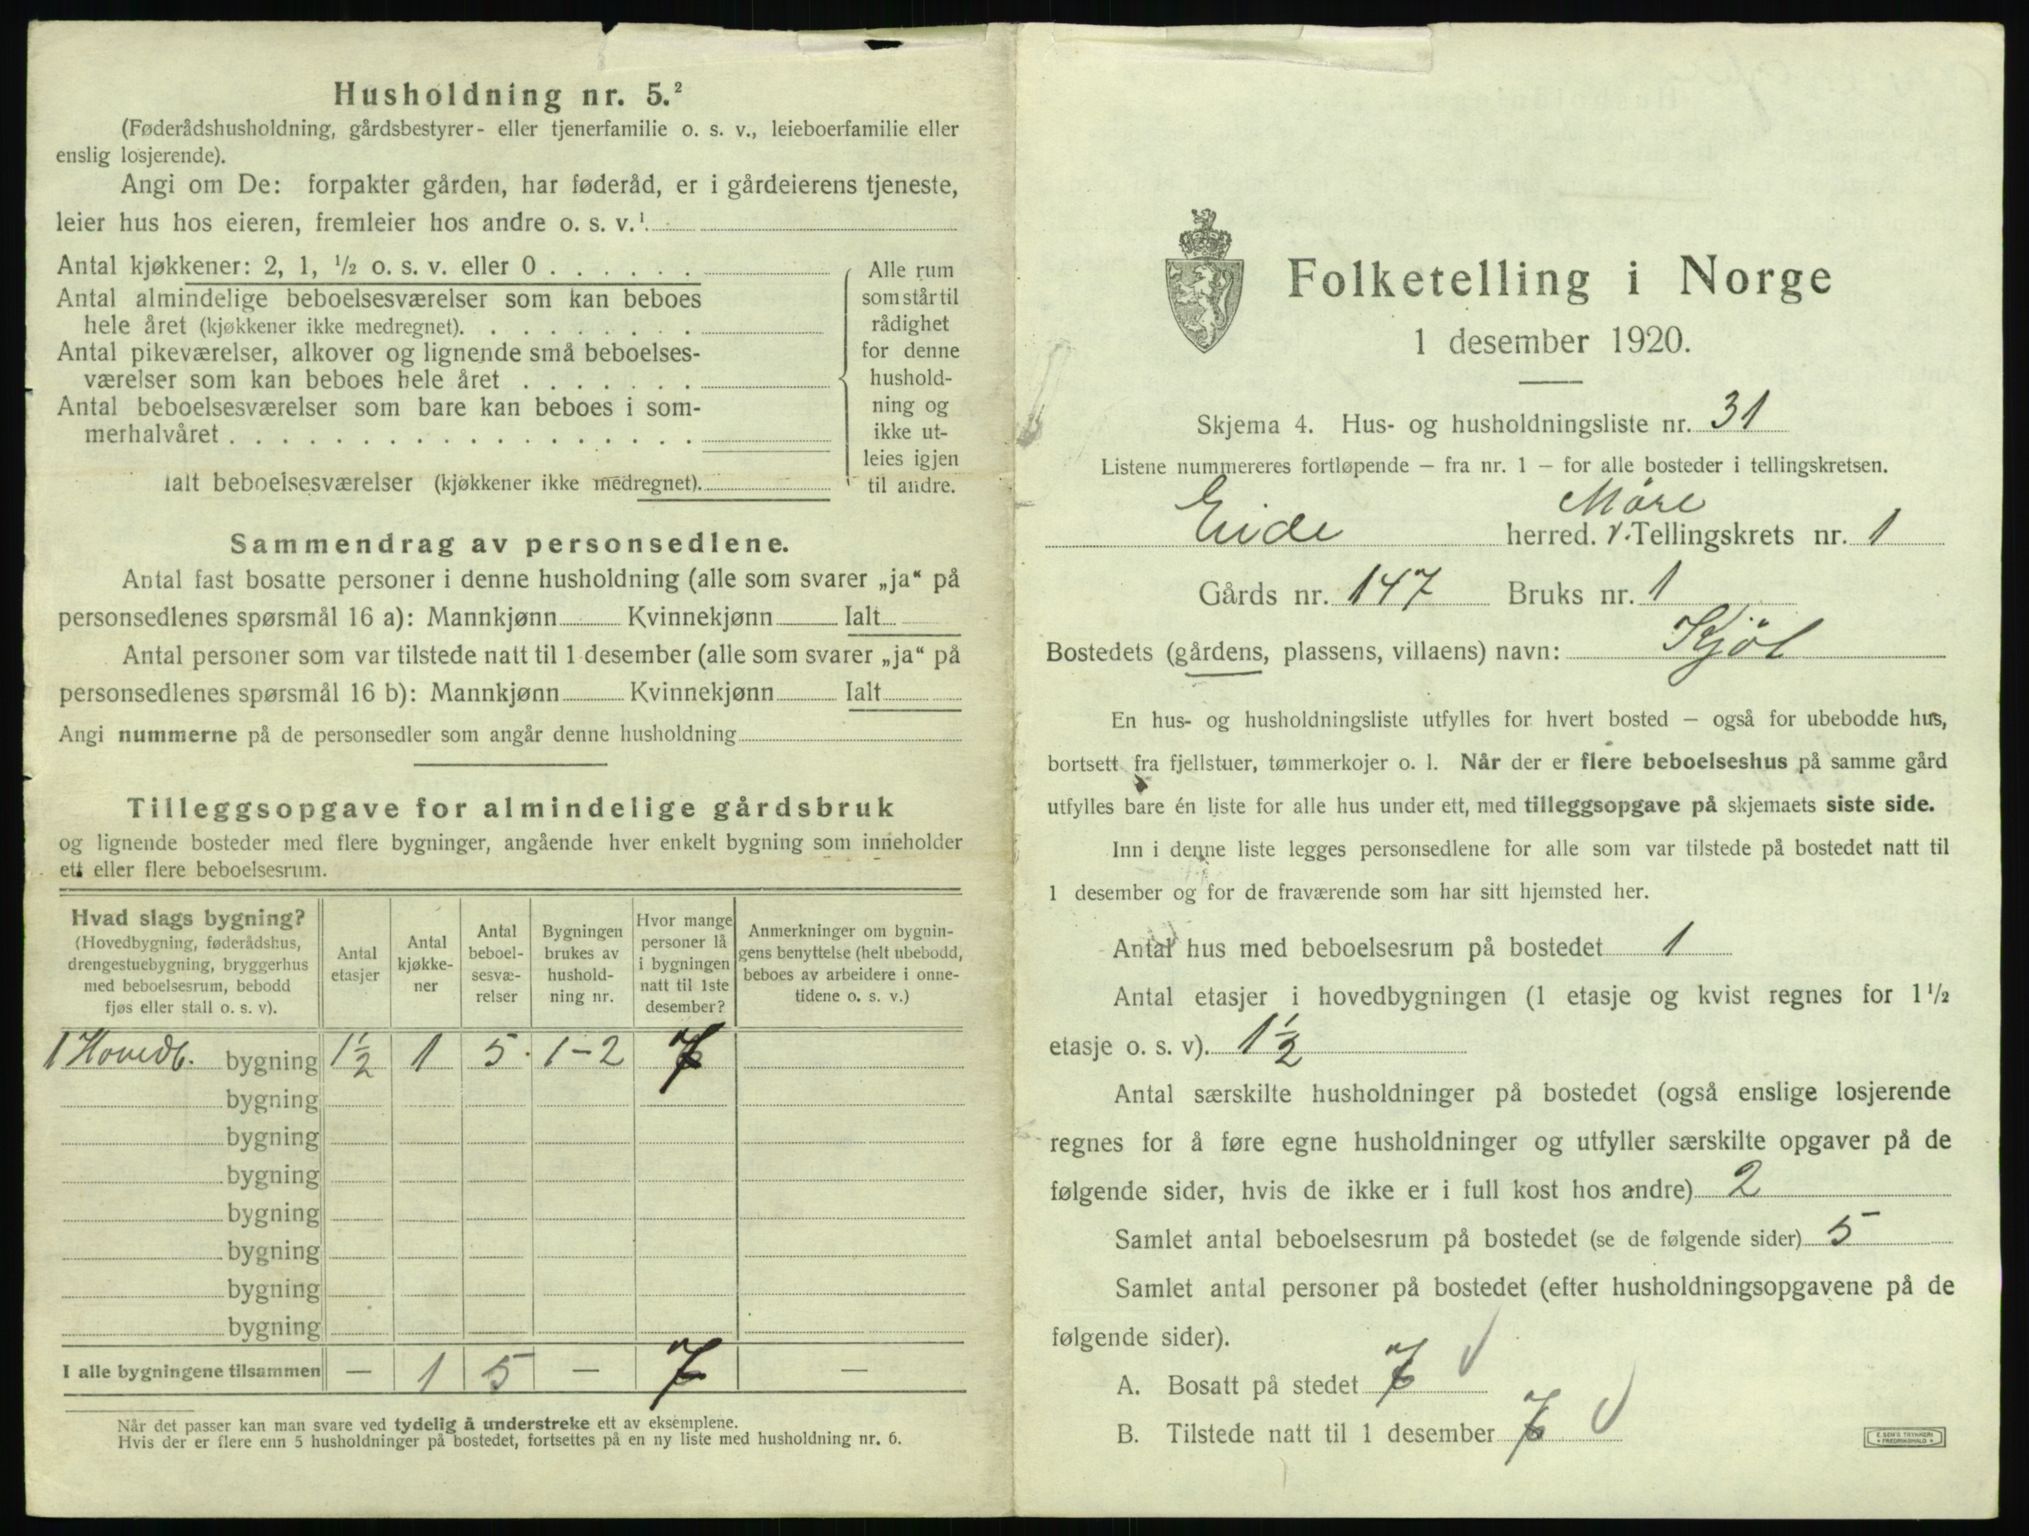 Husholdning nr. 5.²
(Føderådshusholdning, gårdsbestyrer- eller tjenerfamilie o. s. v., leieboerfamilie eller
enslig losjerende).
Angi om De: forpakter gården, har føderåd, er i gårdeierens tjeneste,
leier hus hos eieren, fremleier hos andre o. s. v.¹
Antal kjøkkener: 2, 1, ½ o. s. v. eller 0 . . . . . .
Antal almindelige beboelsesværelser som kan beboes
hele året (kjøkkener ikke medregnet). . . . . . . . .
Antal pikeværelser, alkover og lignende små beboelses-
værelser som kan beboes hele året . . . . . . .
Antal beboelsesværelser som bare kan beboes i som-
merhalvåret . . . . . . . . . . . . . . . . . .
Ialt beboelsesværelser (kjøkkener ikke medregnet).
Alle rum
som står til
rådighet
for denne
hushold-
ning og
ikke ut-
leies igjen
til andre.
Sammendrag av personsedlene.
Antal fast bosatte personer i denne husholdning (alle som svarer „ja“ på
personsedlenes spørsmål 16 a): Mannkjønn Kvinnekjønn Ialt
Antal personer som var tilstede natt til 1 desember (alle som svarer „ja“ på
personsedlenes spørsmål 16 b): Mannkjønn Kvinnekjønn Ialt
Angi nummerne på de personsedler som angår denne husholdning
Tilleggsopgave for almindelige gårdsbruk
og lignende bosteder med flere bygninger, angående hver enkelt bygning som inneholder
ett eller flere beboelsesrum.
Hvad slags bygning?
(Hovedbygning, føderådshus,
drengestuebygning, bryggerhus
med beboelsesrum, bebodd
fjøs eller stall o. s. v).
Antal
etasjer
Antal
kjøkke-
ner
Antal
beboel-
sesvæ-
relser
Bygningen
brukes av
hushold-
ning nr.
Hvor mange
personer lå
i bygningen
natt til 1ste
desember?
Anmerkninger om bygnin-
gens benyttelse (helt ubebodd,
beboes av arbeidere i onne-
tidene o. s. v.)
1 Hovedb. bygning 1½ 1 5 1-2 7
bygning
bygning
bygning
bygning
bygning
bygning
bygning
I alle bygningene tilsammen — 1 5 — 7 —
Når det passer kan man svare ved tydelig å understreke ett av eksemplene.
Hvis der er flere enn 5 husholdninger på bostedet, fortsettes på en ny liste med husholdning nr. 6.
Folketelling i Norge
1 desember 1920.
Skjema 4. Hus- og husholdningsliste nr. 31
Listene nummereres fortløpende – fra nr. 1 – for alle bosteder i tellingskretsen.
Møre
Eide herred. Tellingskrets nr. 1
Gårds nr. 147 Bruks nr. 1
Bostedets (gårdens, plassens, villaens) navn: Kjøl
En hus- og husholdningsliste utfylles for hvert bosted – også for ubebodde hus,
bortsett fra fjellstuer, tømmerkojer o. l. Når der er flere beboelseshus på samme gård
utfylles bare én liste for alle hus under ett, med tilleggsopgave på skjemaets siste side.
Inn i denne liste legges personsedlene for alle som var tilstede på bostedet natt til
1 desember og for de fraværende som har sitt hjemsted her.
Antal hus med beboelsesrum på bostedet 1
Antal etasjer i hovedbygningen (1 etasje og kvist regnes for 1½
etasje o. s. v). 1½
Antal særskilte husholdninger på bostedet (også enslige losjerende
regnes for å føre egne husholdninger og utfyller særskilte opgaver på de
følgende sider, hvis de ikke er i full kost hos andre) 2
Samlet antal beboelsesrum på bostedet (se de følgende sider) 5
Samlet antal personer på bostedet (efter husholdningsopgavene på de
følgende sider).
A. Bosatt på stedet 7
B. Tilstede natt til 1 desember 7
E. SEM'S TRYKKERI
FREDRIKSHALD